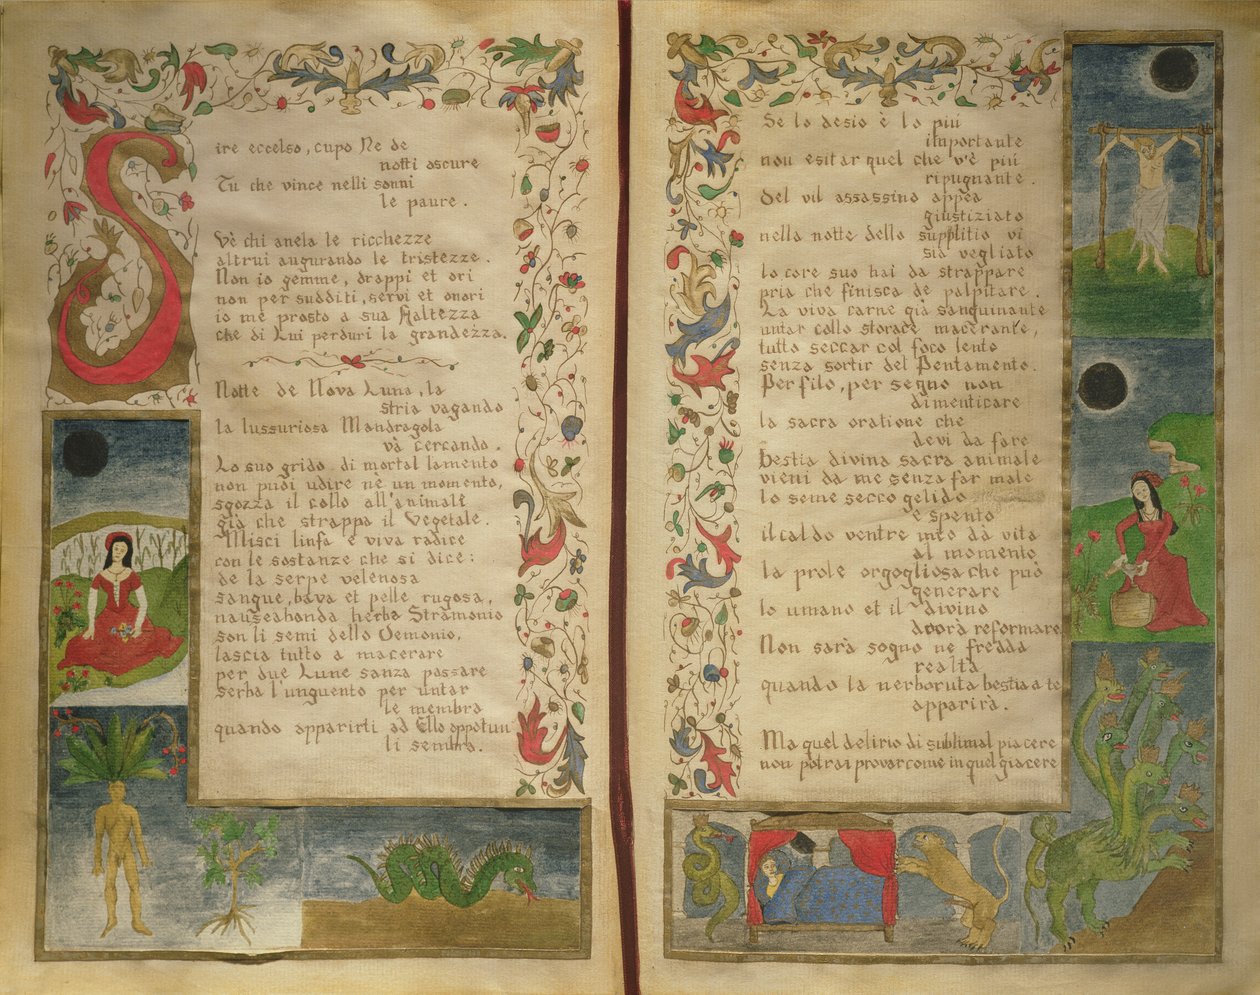 Sire eccelso, cupo Re de
notti oscure
Tu che vince nelli sonni
le paure.
Vè chi anela le ricchezze
altrui augurando le tristezze.
Non io gemme, drappi et ori
non per sudditi, servi et onori
io me prosto a sua Haltezza
che di Lui perduri la grandezza.
Notte de Nova Luna, la
stria vagando
la lussuriosa Mandragola
và cercando.
Lo suo grido di mortal lamento
non puoi udire nè un momento,
sgozza il collo all'animale
già che strappa il Vegetale.
Misci linfa e viva radice
con le sostanze che si dice:
de la serpe velenosa
sangue, bava et pelle rugosa,
nauseabonda herba Stramonio
son li semi dello Demonio,
lascia tutto a macerare
per due Lune sanza passare
serba l'unguento per untar
le membra
quando apparirti ad Ello opotun
li sembra.
Se lo desio è lo più
importante
non esitar quel che v'è più
ripugnante.
Del vil assassino appea
giustiziato
nella notte dello supplitio vi
sia vegliato
lo core suo hai da strappare
pria che finisca de palpitare.
La viva carne già sanguinante
untar collo storace macerante,
tutto seccar col foco lento
senza sortir del Pentamento.
Per filo, per segno non
dimenticare
la sacra oratione che
devi da fare
bestia divina sacra animale
vieni da me senza far male
lo seme secco gelido
e spento
il caldo ventre into dà vita
al momento
la prole orgogliosa che può
generare
lo umano et il divino
dovrà reformare
Non sarà sogno ne fredda
realtà
quando la nerboruta bestia a te
apparirà.
Ma quel delirio di sublimal piacere
non potrai provar come in quel giacere